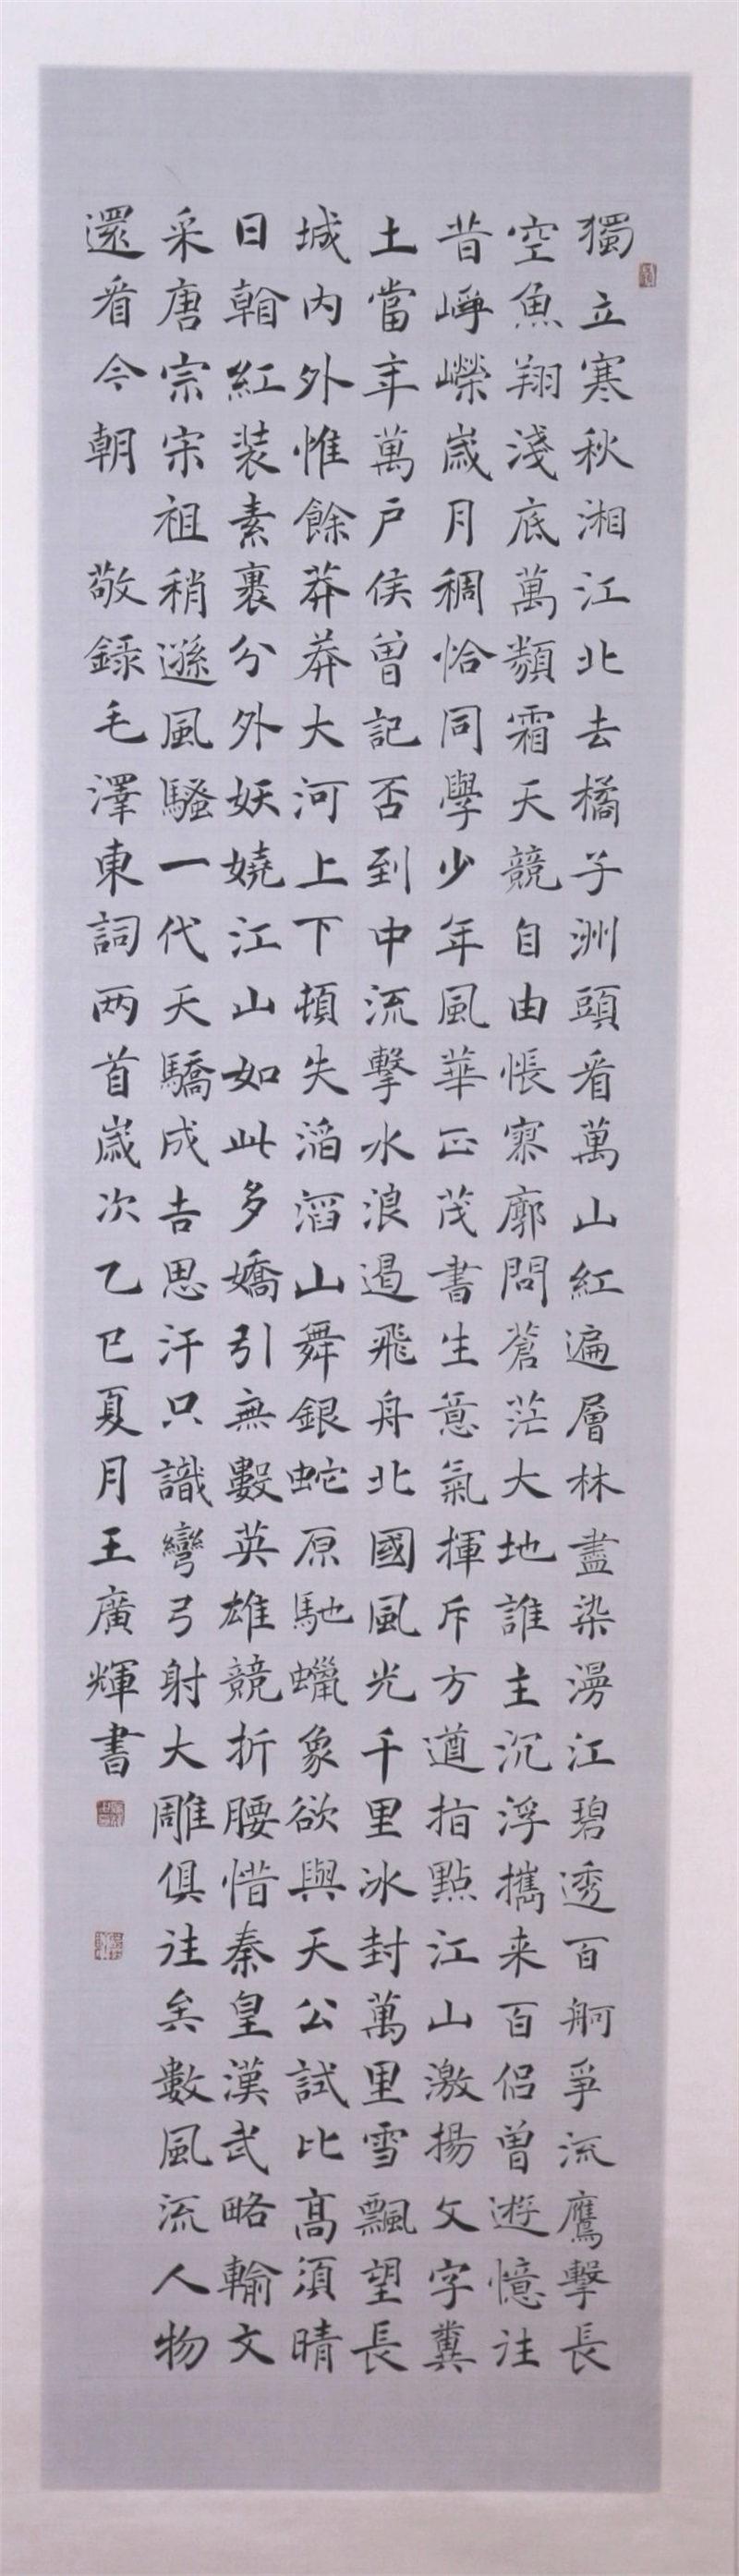 獨立寒秋湘江北去橘子洲頭看萬山紅遍層林盡染漫江碧透百舸爭流鷹擊長
空魚翔淺底萬類霜天競自由悵寥廓問蒼茫大地誰主沉浮攜来百侣曾遊憶往
昔崢嶸歲月稠恰同學少年風華正茂書生意氣揮斥方遒指點江山激揚文字糞
土當年萬户侯曾記否到中流擊水浪遏飛舟北國風光千里冰封萬里雪飄望長
城内外惟餘莽莽大河上下頓失滔滔山舞銀蛇原馳蠟象欲與天公試比高須晴
日看紅装素裹分外妖嬈江山如此多嬌引無數英雄競折腰惜秦皇漢武略輸文
采唐宗宋祖稍遜風騷一代天驕成吉思汗只識彎弓射大雕俱往矣數風流人物
還看今朝 敬録毛澤東詞两首歲次乙巳夏月王廣輝書